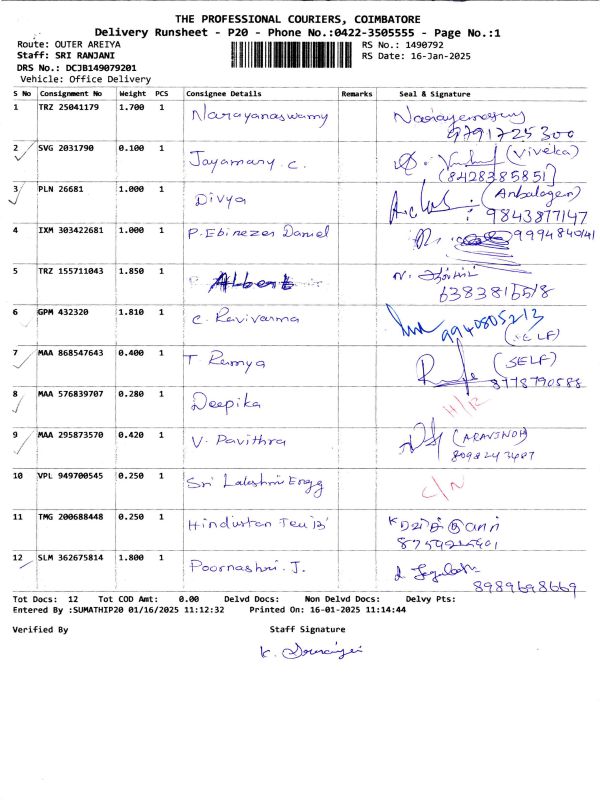 THE PROFESSIONAL COURIERS, COIMBATORE
Delivery Runsheet - P20 - Phone No.:0422-3505555 - Page No.:1
Route: OUTER AREIYA
RS No.: 1490792
Staff: SRI RANJANI
RS Date: 16-Jan-2025
DRS No.: DCJB149079201
Vehicle: Office Delivery
S No Consignment No Weight PCS Consignee Details Remarks Seal & Signature
1 TRZ 25041179 1.700 1 Narayanaswamy
9791725300
2 SVG 2031790 0.100 1 Jayamary . c. (Viveka)
(8428385851)
3 PLN 26681 1.000 1 Divya (Anbalagen)
9843877147
4 IXM 303422681 1.000 1 P. Ebinezer Daniel 9994840141
5 TRZ 155711043 1.850 1 Albert
6383816518
6 GPM 432320 1.810 1 C. Ravivarma 9940805213
(SELF)
7 MAA 868547643 0.400 1 T Ramya (SELF)
8778790588
8 MAA 576839707 0.280 1 Deepika H/R
9 MAA 295873570 0.420 1 V. Pavithra (ARAVINDH)
8098243687
10 VPL 949700545 0.250 1 Sri Lakshmi Engg C/N
11 TMG 200688448 0.250 1 Hindustan
12 SLM 362675814 1.800 1 Poornashri . J.
8989698669
Tot Docs: 12 Tot COD Amt: 0.00 Delvd Docs: Non Delvd Docs: Delvy Pts:
Entered By :SUMATHIP20 01/16/2025 11:12:32 Printed On: 16-01-2025 11:14:44
Verified By Staff Signature